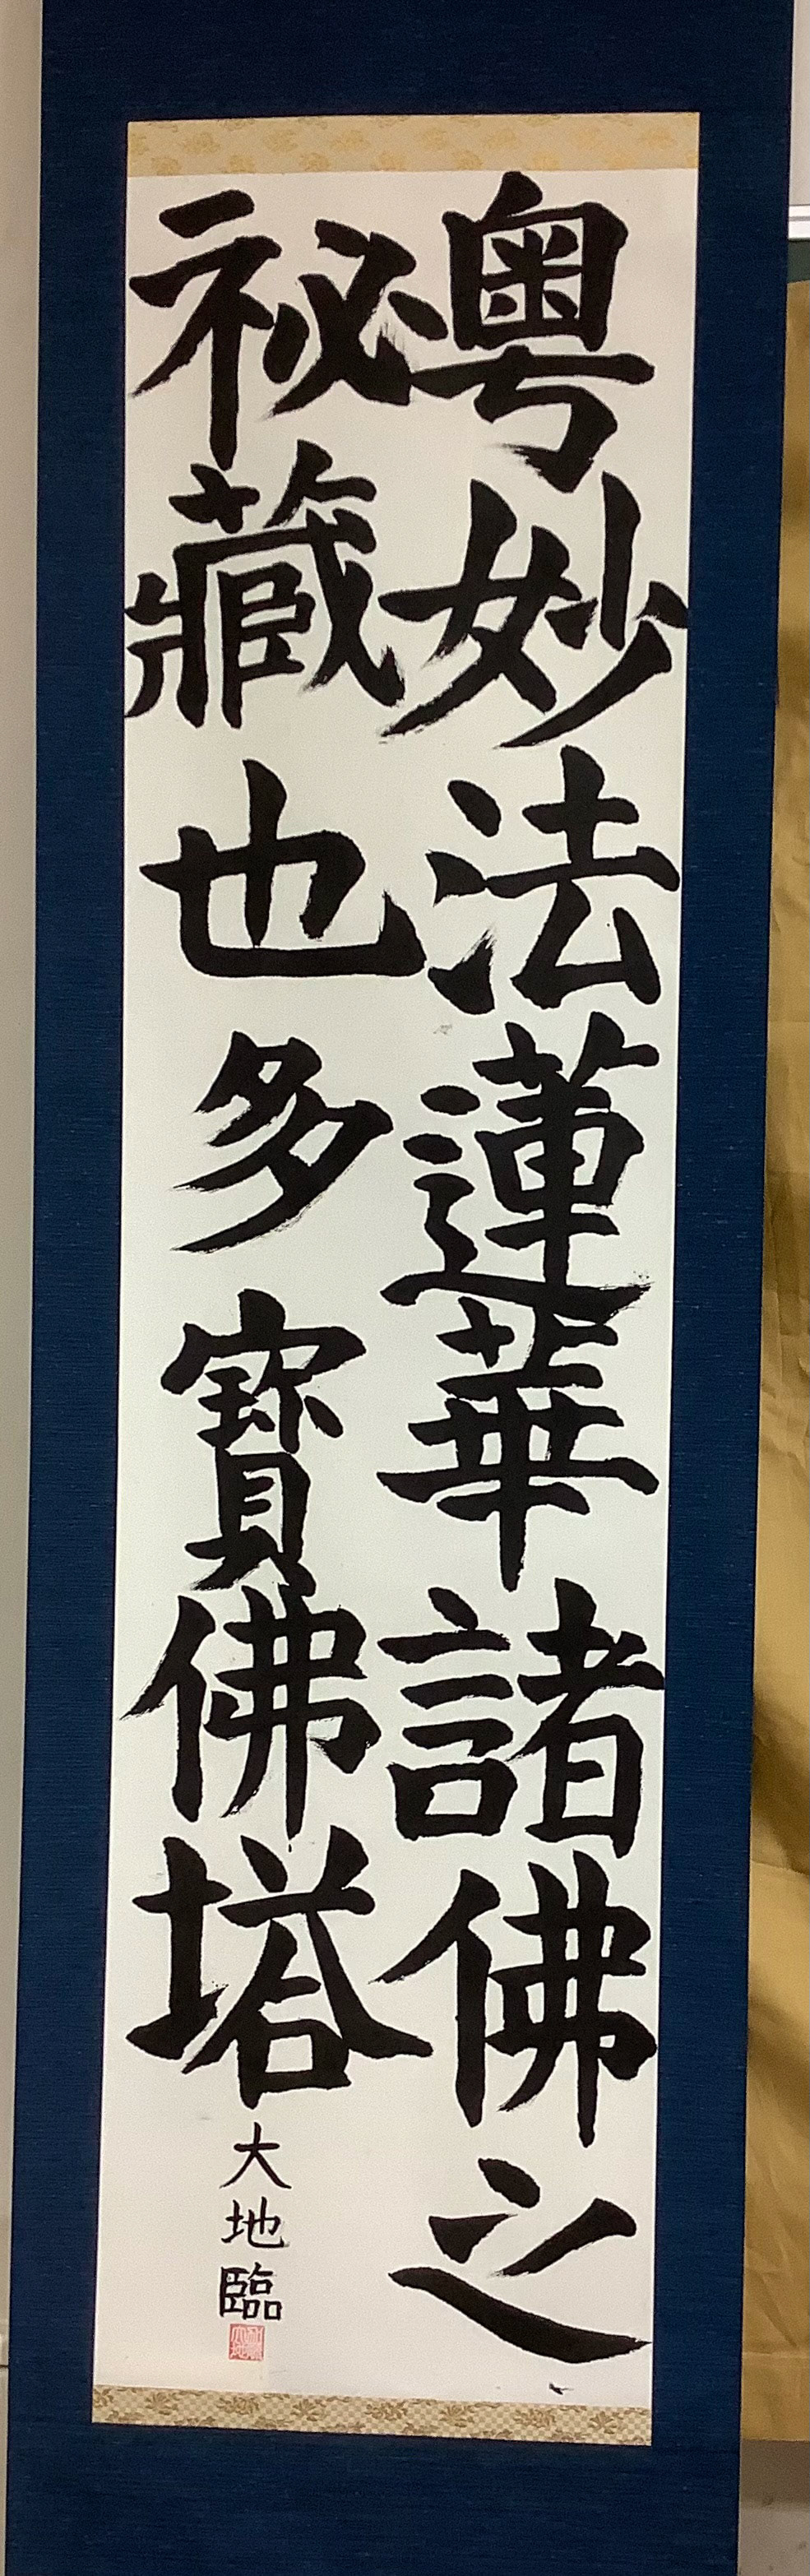 粤妙法蓮華諸佛之
祕藏也多寶佛塔
大地臨